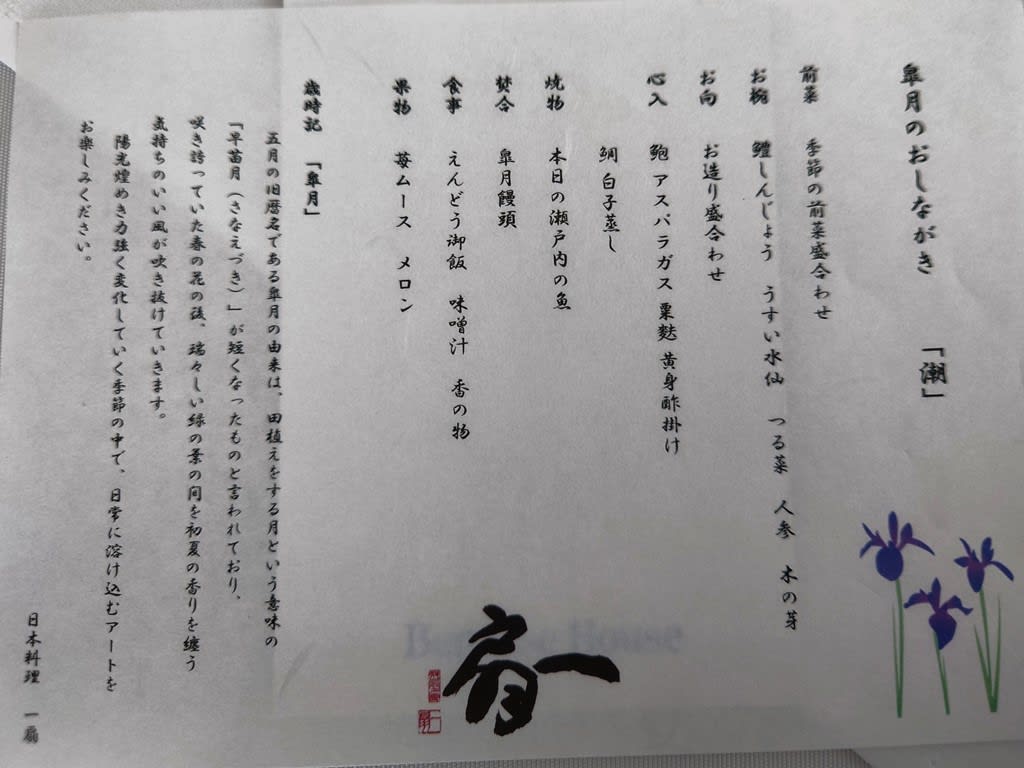 皐月のおしながき　「潮」
前菜　季節の前菜盛合わせ
お椀　鱧しんじょう　うすい水仙　つる菜　人参　木の芽
お向　お造り盛合わせ
心入　鮑 アスパラガス 粟麩 黄身酢掛け
鯛 白子蒸し
焼物　本日の瀬戸内の魚
焚合　皐月饅頭
食事　えんどう御飯　味噌汁　香の物
果物　苺ムース　メロン
歳時記　「皐月」
五月の旧暦名である皐月の由来は、田植えをする月という意味の
「早苗月（さなえづき）」が短くなったものと言われており、
咲き誇っていた春の花の後、瑞々しい緑の葉の間を初夏の香りを纏う
気持ちのいい風が吹き抜けていきます。
陽光煌めき力強く変化していく季節の中で、日常に溶け込むアートを
お楽しみください。
日本料理　一扇
一扇
House